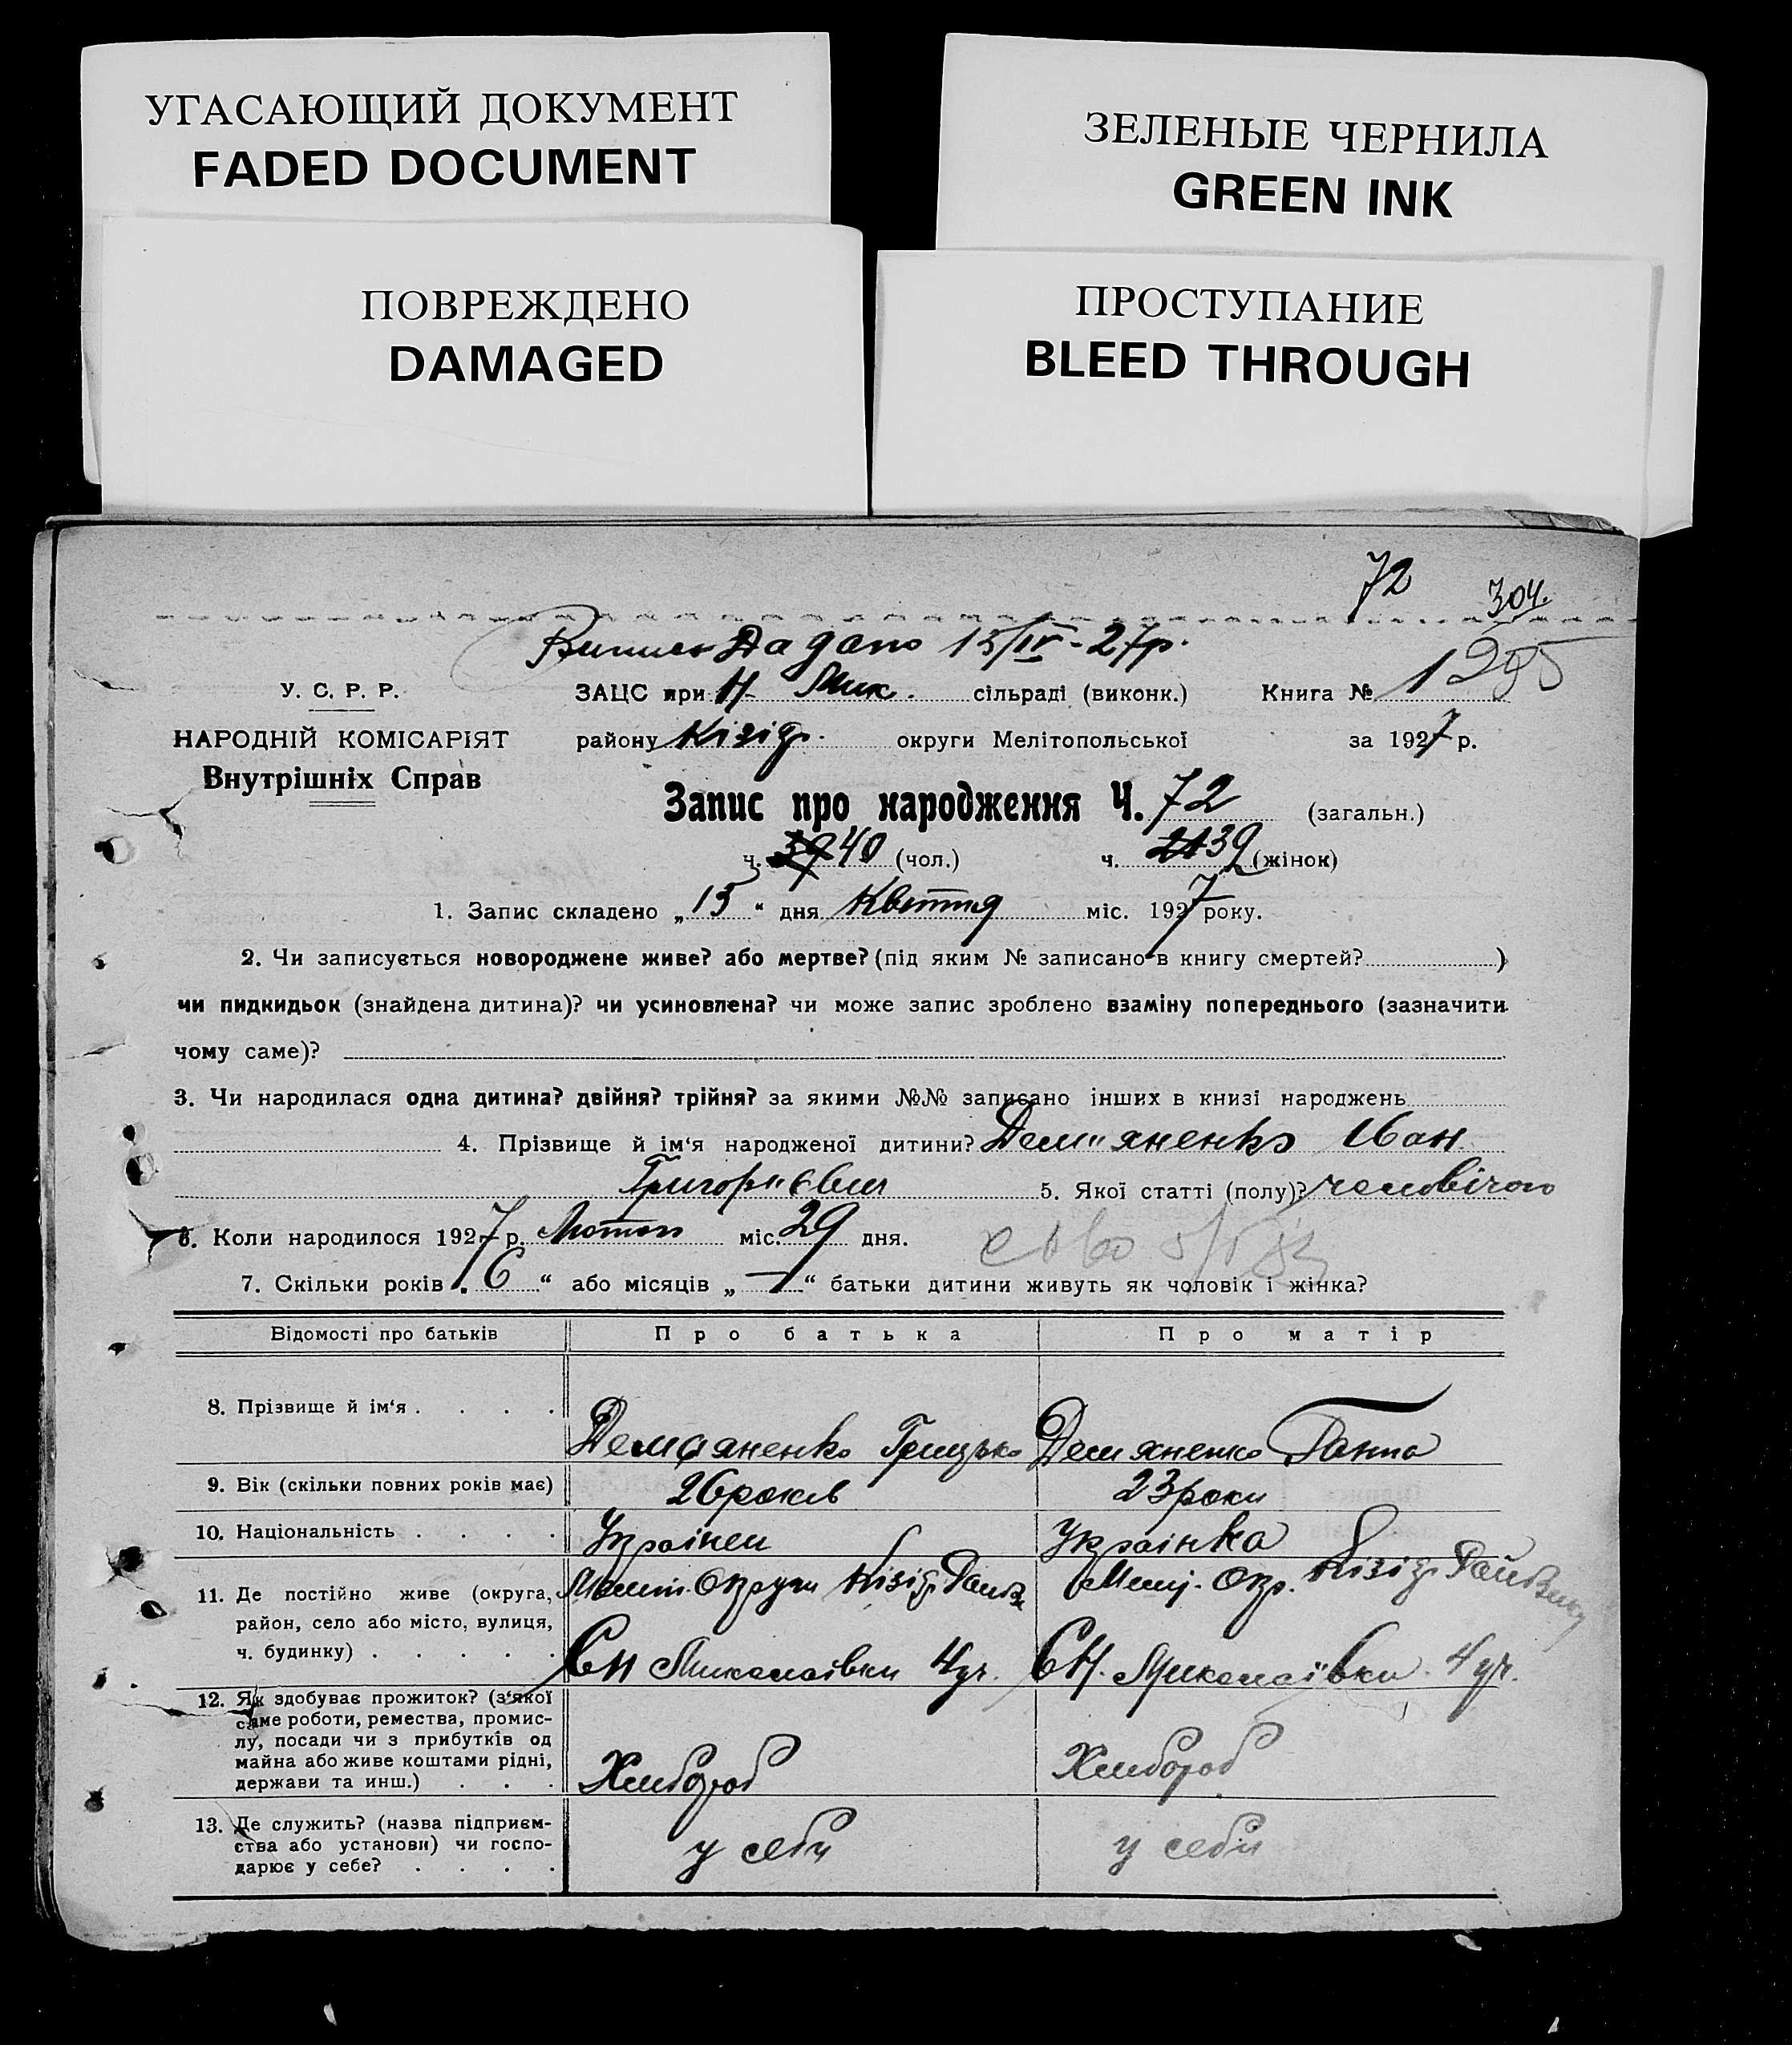 УГАСАЮЩИЙ ДОКУМЕНТ
FADED DOCUMENT
ЗЕЛЕНЫЕ ЧЕРНИЛА
GREEN INK
ПОВРЕЖДЕНО
DAMAGED
ПРОСТУПАНИЕ
BLEED THROUGH
72
304.
Випись Дадано 15/IV-27р.
У. С. Р. Р.
ЗАЦС при Н. Мик. сільраді (виконк.) Книга № 1 295
НАРОДНІЙ КОМІСАРІЯТ
району Кізіяр. округи Мелітопольської за 1927 р.
Внутрішніх Справ
Запис про народження Ч. 72 (загальн.)
ч. 39 40 (чол.) ч. 39 (жінок)
1. Запис складено „15“ дня Квітня міс. 1927 року.
2. Чи записується новороджене живе? або мертве? (під яким № записано в книгу смертей? )
чи пидкидьок (знайдена дитина)? чи усиновлена? чи може запис зроблено взаміну попереднього (зазначити
чому саме)?
3. Чи народилася одна дитина? двійня? трійня? за якими №№ записано інших в книзі народжень
4. Прізвище й ім‘я народженої дитини? Дем"яненко Іван
Григор"євич 5. Якої статті (полу)? чоловічою
6. Коли народилося 1927 р. Лютого міс. 29 дня.
7. Скільки років „6“ або місяців „—“ батьки дитини живуть як чоловік і жінка?
Відомості про батьків Про батька Про матір
8. Прізвище й ім‘я . . . . Демяненко Грицько Демяненко Ганна
9. Вік (скільки повних років має) 26 років 23 роки
10. Національність . . . . Українец Українка
11. Де постійно живе (округа, Меліт. Округи Кізіяр. Мелі. Окр. Кізіяр.
район, село або місто, вулиця,
ч. будинку) . . . . . СН Миколаївки 4 уч. СН. Миколаївки 4 уч.
12. Як здобуває прожиток? (з‘якої
саме роботи, ремества, промис-
лу, посади чи з прибутків од
майна або живе коштами рідні,
держави та инш.) . . . Хлибороб Хлибороб
13. Де служить? (назва підприєм-
ства або установи) чи госпо-
дарює у себе? . . . . у себи у себи